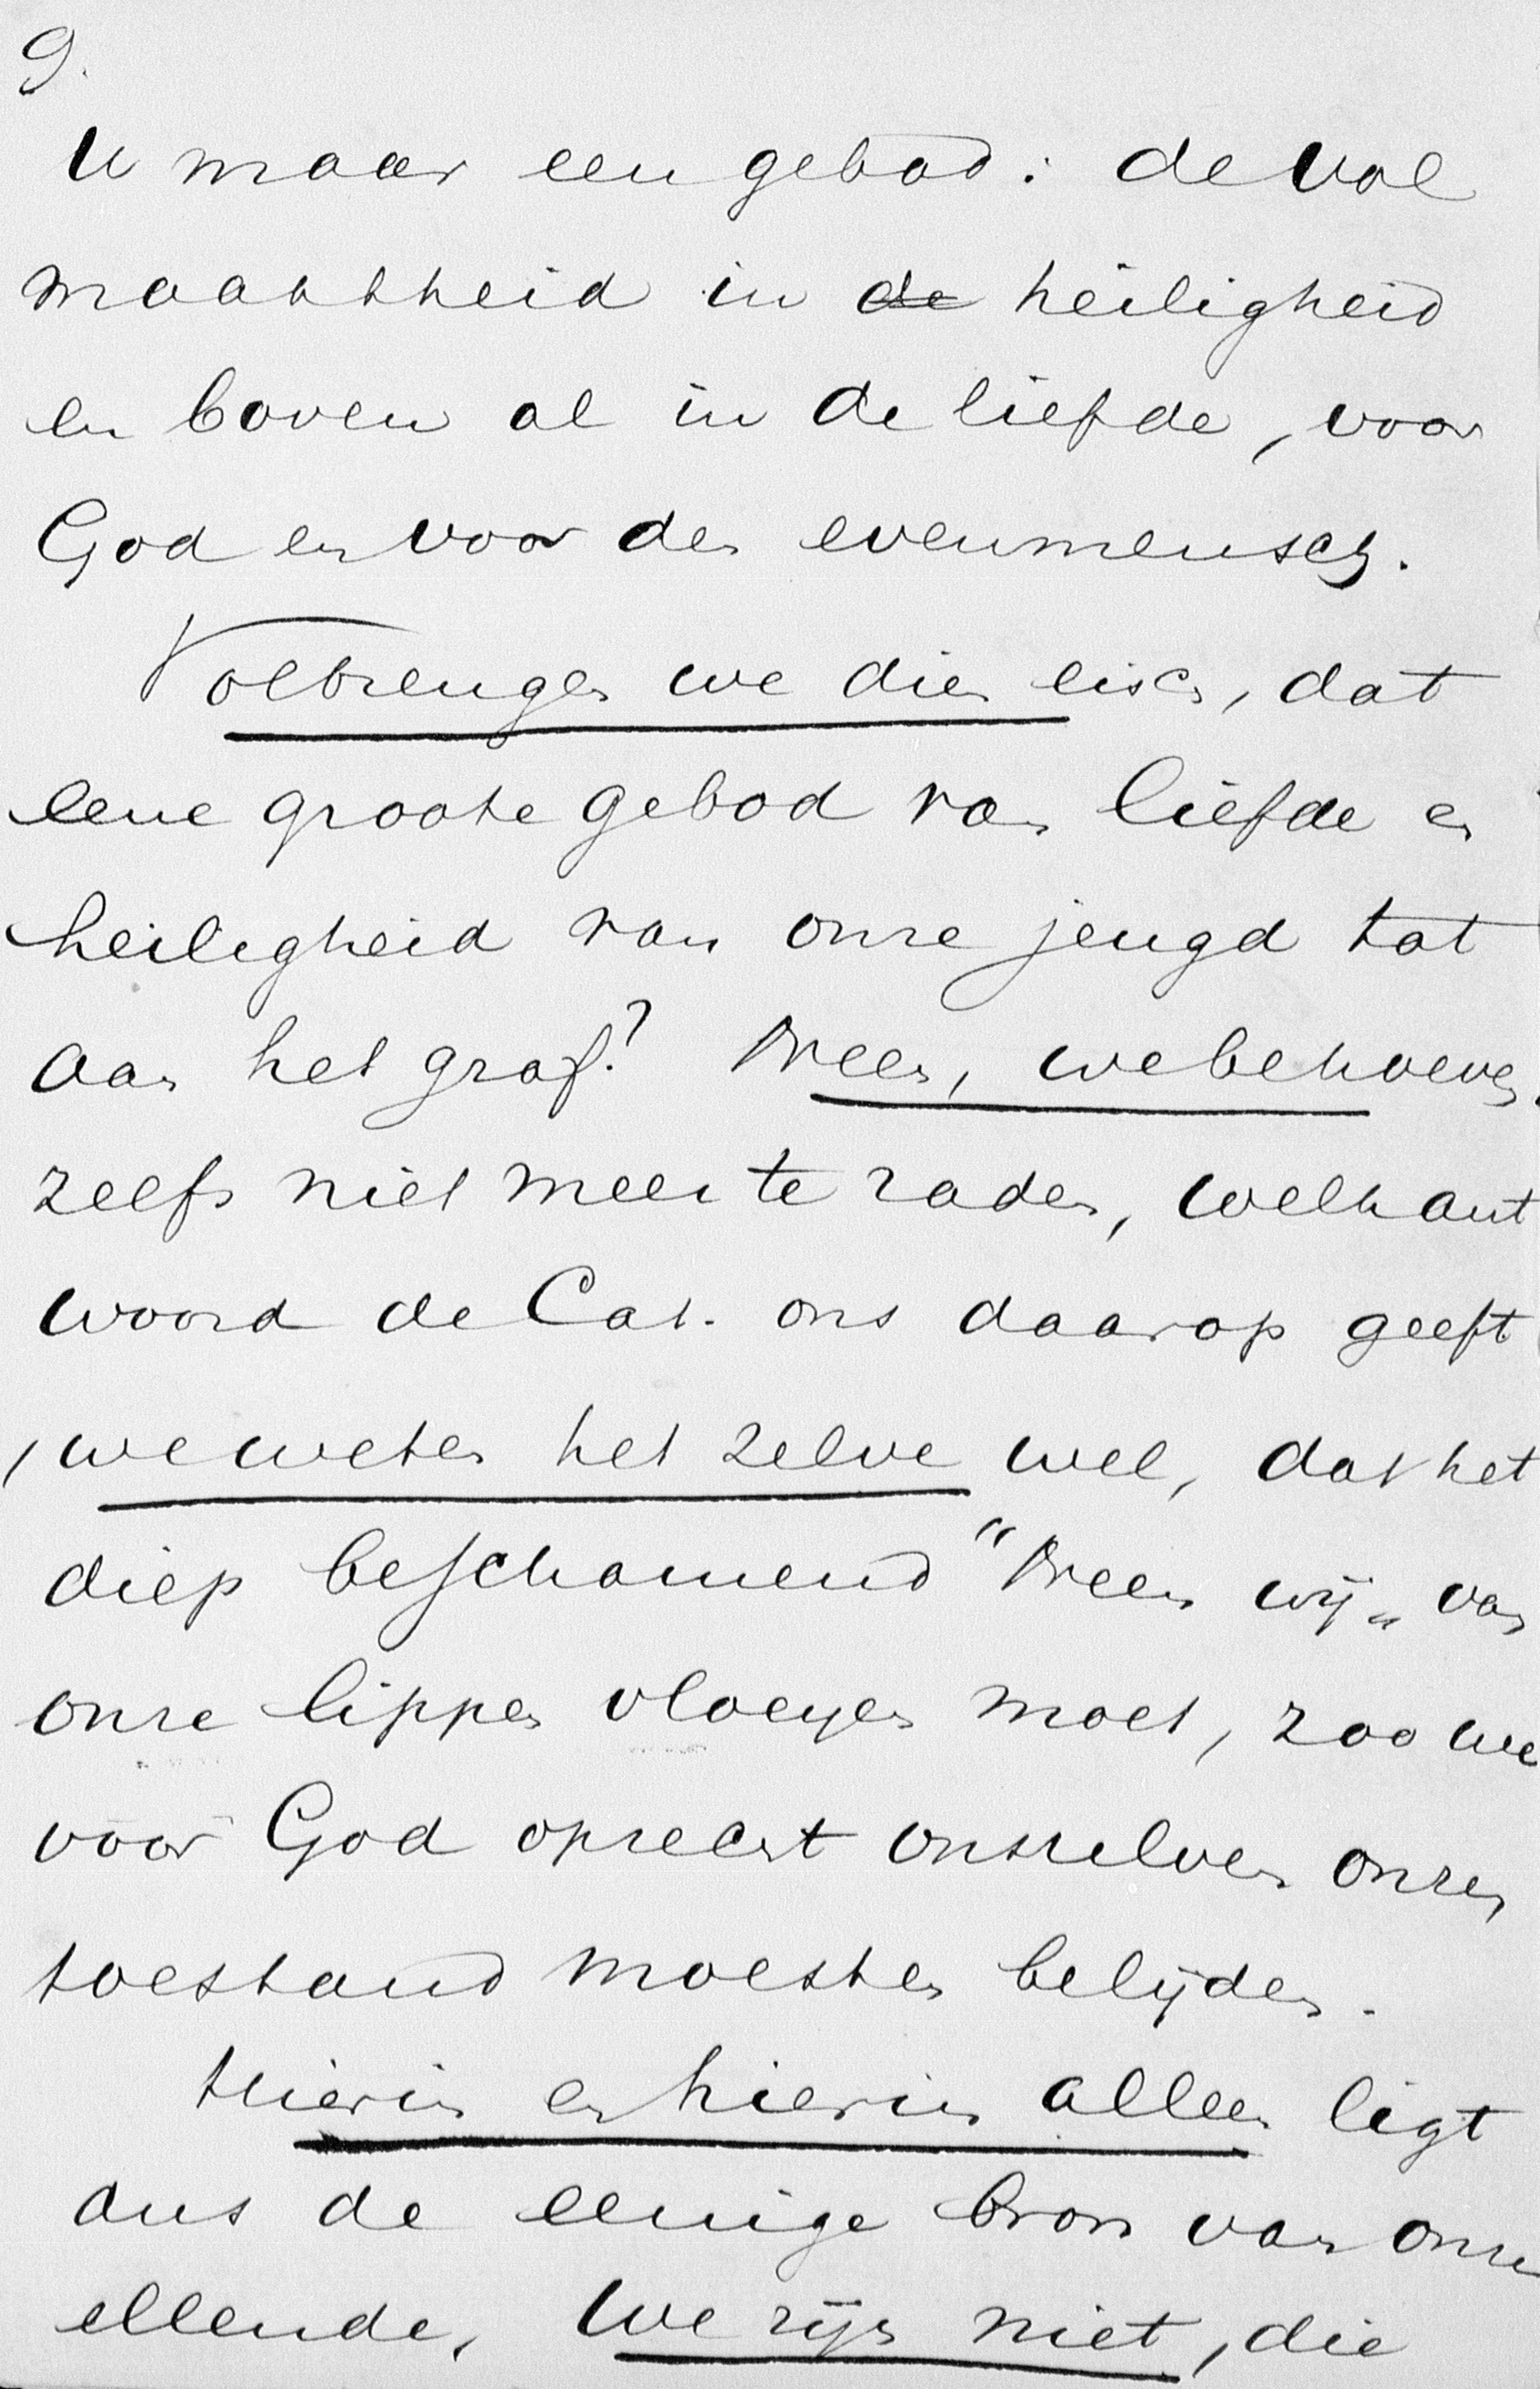 9.
U maar een gebod: de vol
maaktheid in de heiligheid
en boven al in de liefde, voor
God en voor den evenmensch.
Volbrengen we dien eisch, dat
eene groote gebod van liefde en
heiligheid van onze jeugd tot
aan het graf? Neen, we behoeven
zelfs niet meer te raden, welk ant
woord de Cat. ons daarop geeft
, we weten het zelve wel, dat het
diep beschamend "Neen wij" van
onze lippen vloeyen moet, zoo we
voor God oprecht onszelven onzen
toestand moesten belijden.
Hierin en hierin alleen ligt
dus de eenige bron van onze
ellende, we zijn niet, die